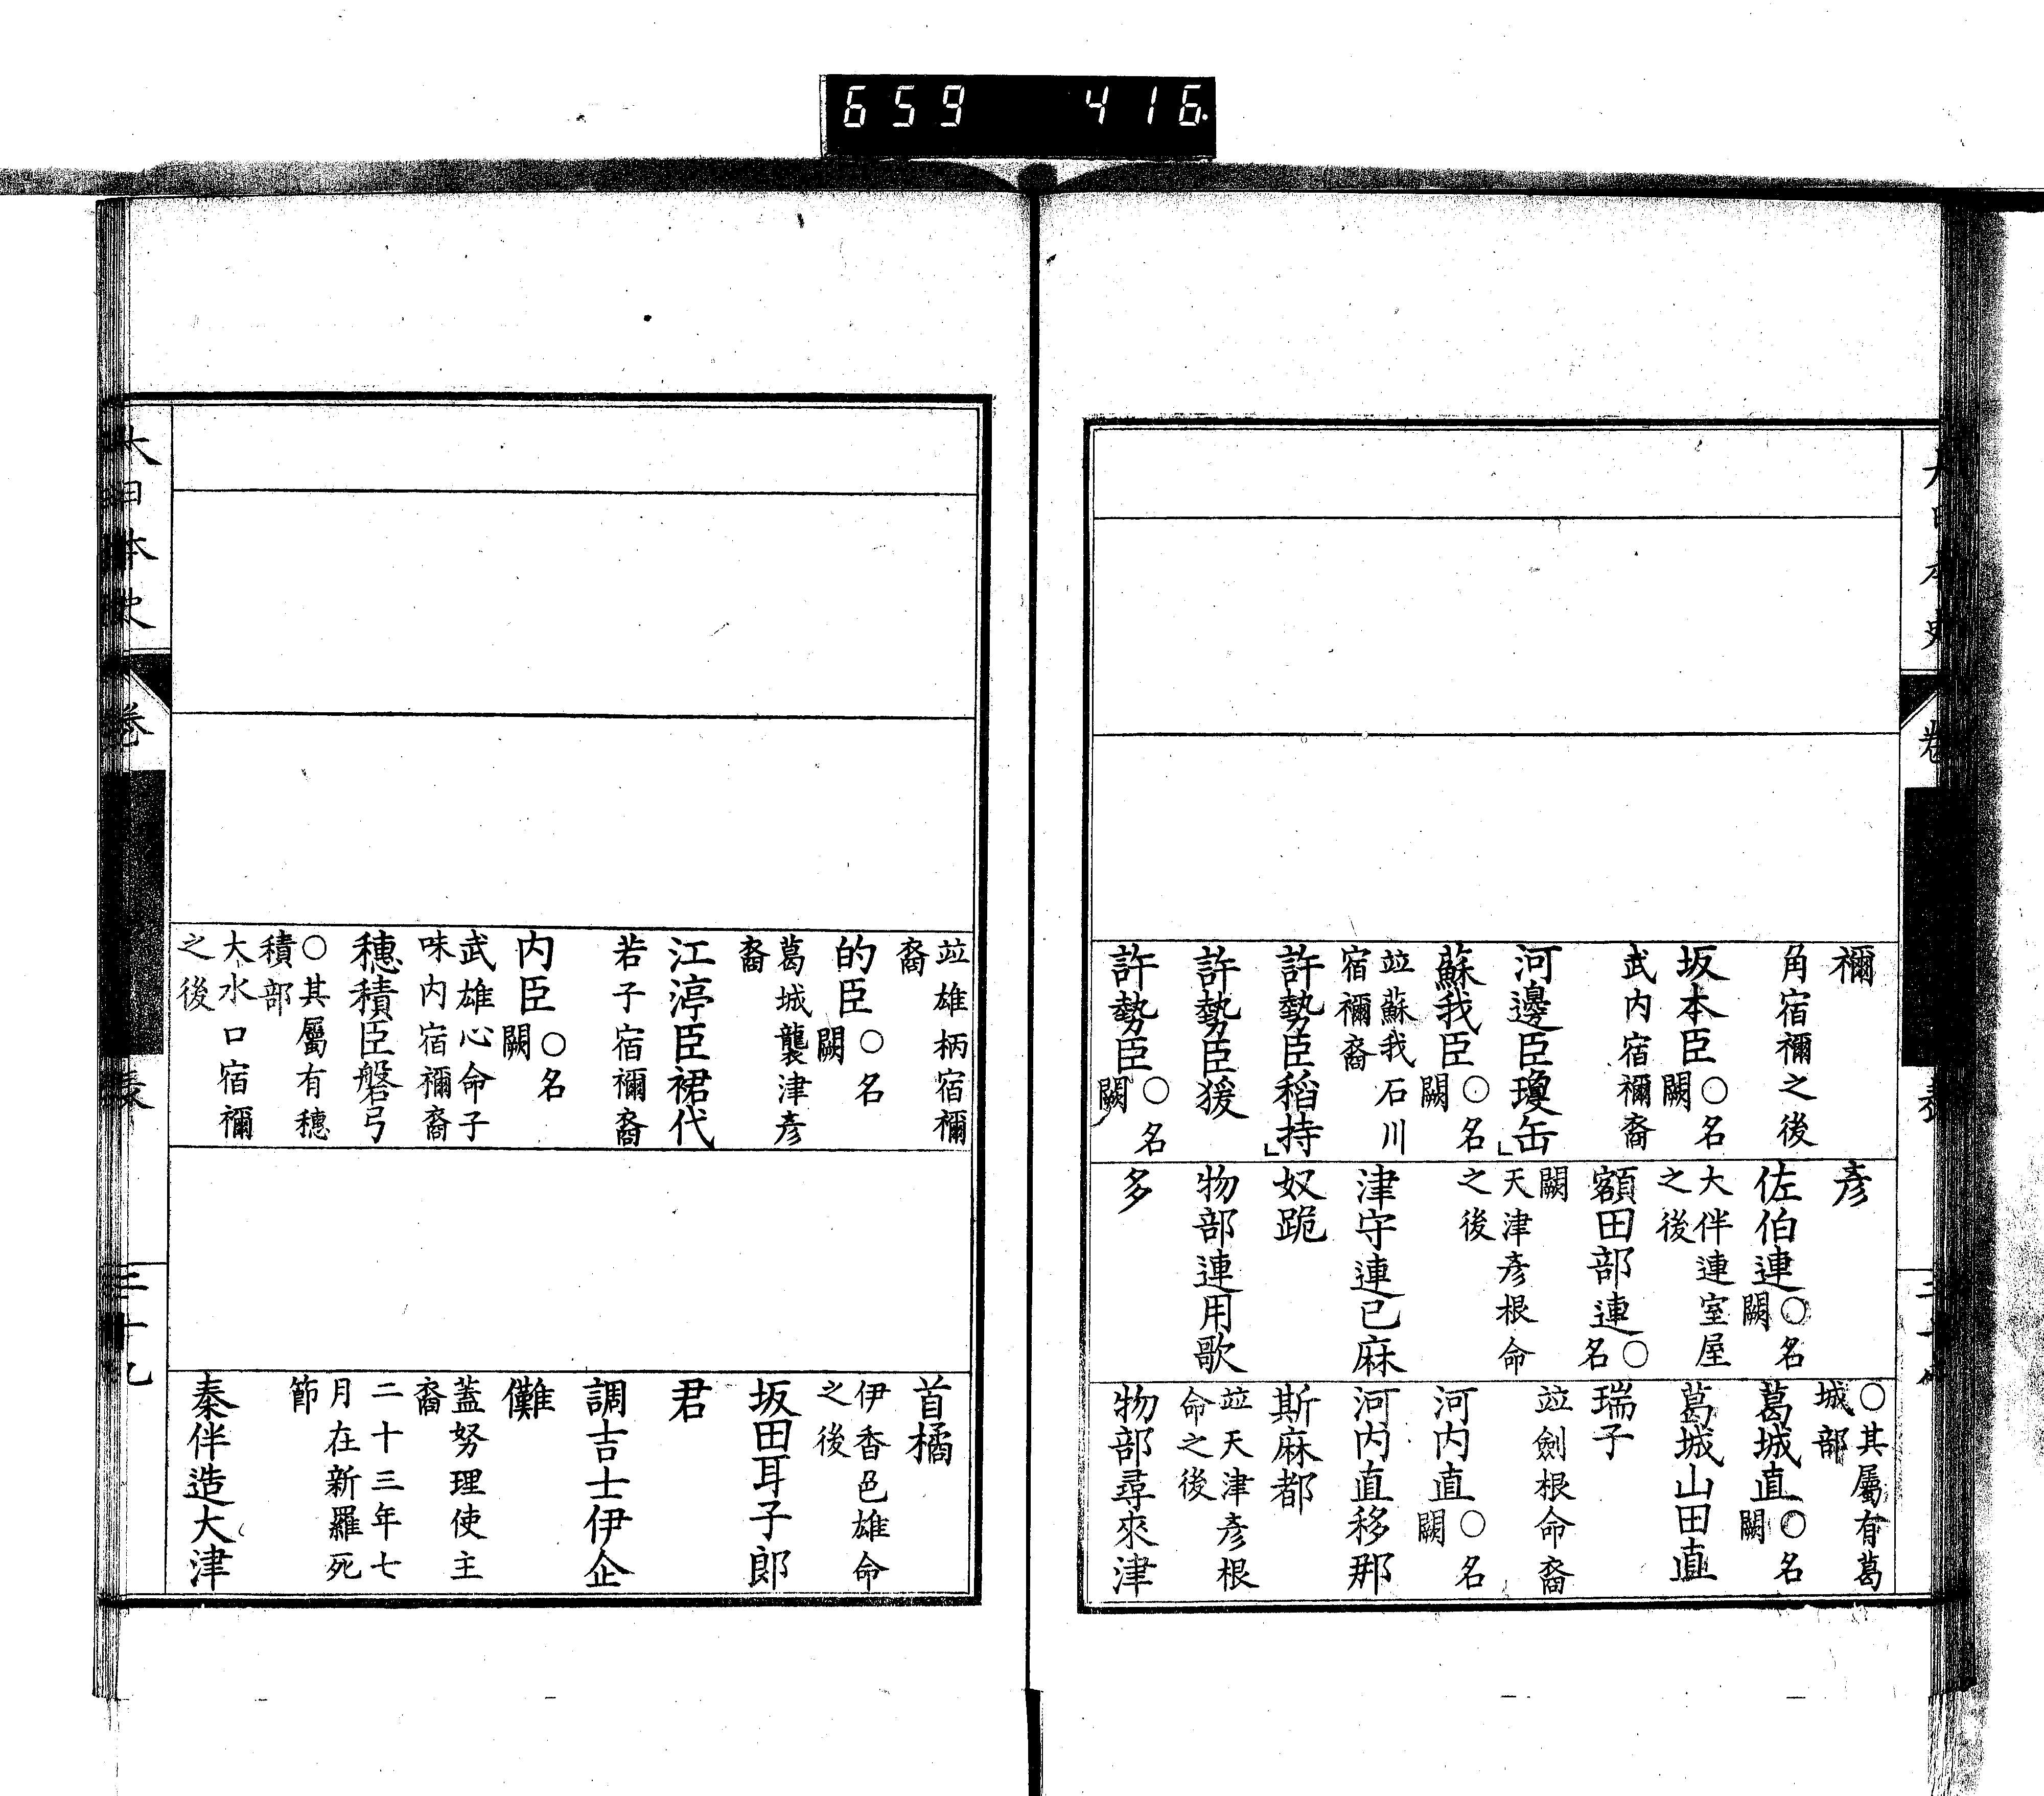 659 416
禰
角宿禰之後
坂本臣○名
闕
武内宿禰裔
河邊臣瓊缶
蘇我臣○名
闕
竝蘇我石川
宿禰裔
許勢臣稻持
許勢臣猨
許勢臣○名
闕
彥
佐伯連○名
闕
大伴連室屋
之後
額田部連○名
闕
天津彥根命
之後
津守連己麻
奴跪
物部連用歌
多
○其屬有葛
城部
葛城直○名
闕
葛城山田直
瑞子
竝劍根命裔
河内直○名
闕
河内直移那
斯麻都
竝天津彥根
命之後
物部尋來津
竝雄柄宿禰
裔
的臣○名
闕
葛城襲津彥
裔
江渟臣裙代
若子宿禰裔
内臣○名
闕
武雄心命子
味内宿禰裔
穗積臣磐弓
○其屬有穗
積部
大水口宿禰
之後
首橘
伊香色雄命
之後
坂田耳子郎
君
調吉士伊企
儺
蓋努理使主
裔
二十三年七
月在新羅死
節
秦伴造大津
大日本史
卷
表
三十九